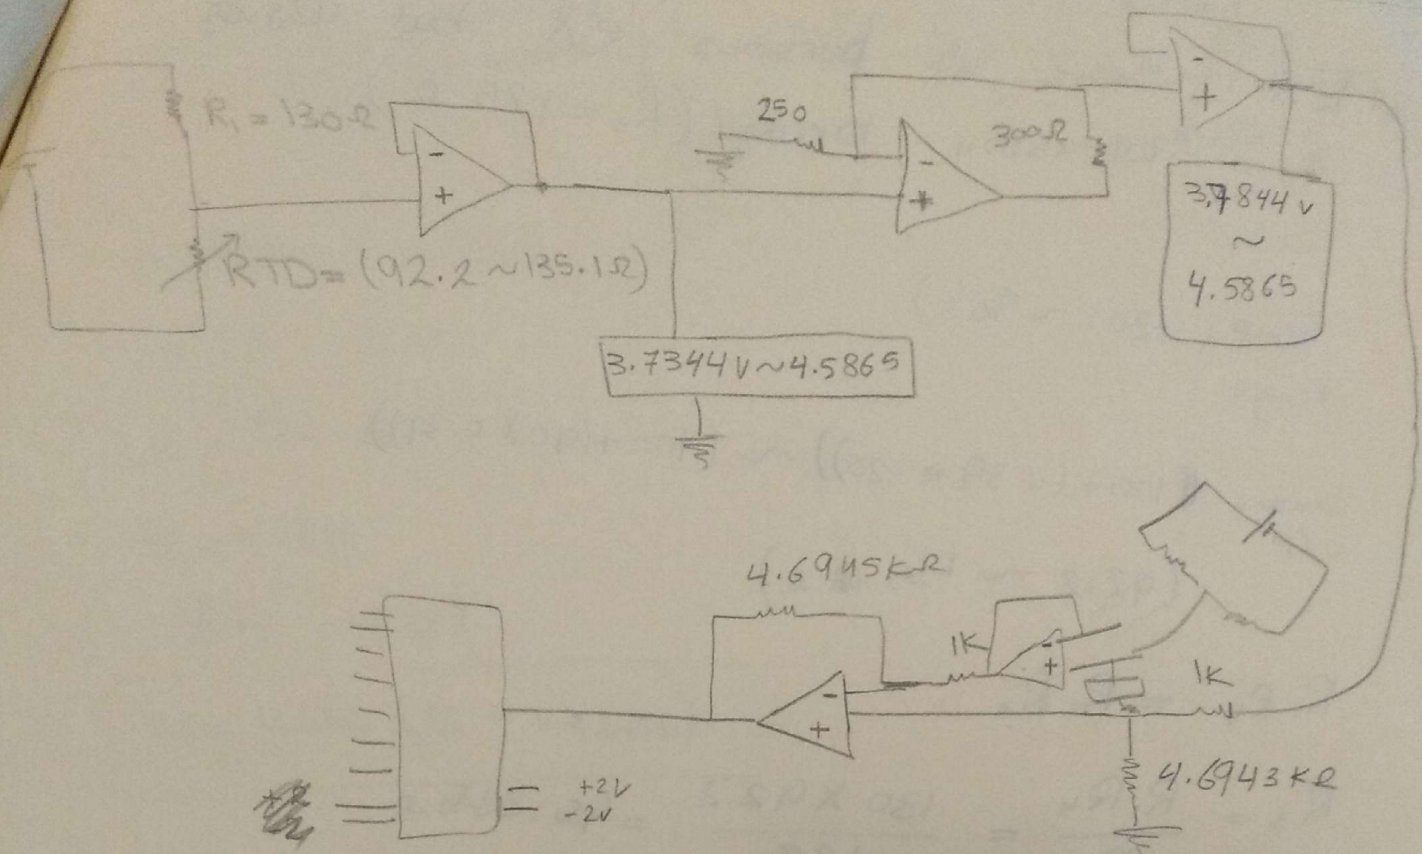 R₁ = 130Ω
-
+
RTD = (92.2 ~ 135.1Ω)
250
-
+
300Ω
-
+
3.7844 v
~
4.5865
3.7344 v ~ 4.5865
4.6945KΩ
1K
-
+
1K
-
+
4.6943KΩ
+2v
-2v